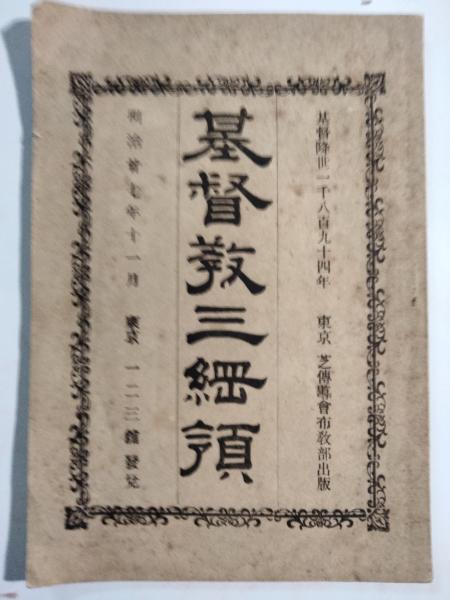 基督降世一千八百九十四年 東京 芝傳道會布教部出版
基督教三綱領
明治廿七年十一月 東京 一二三館發兌